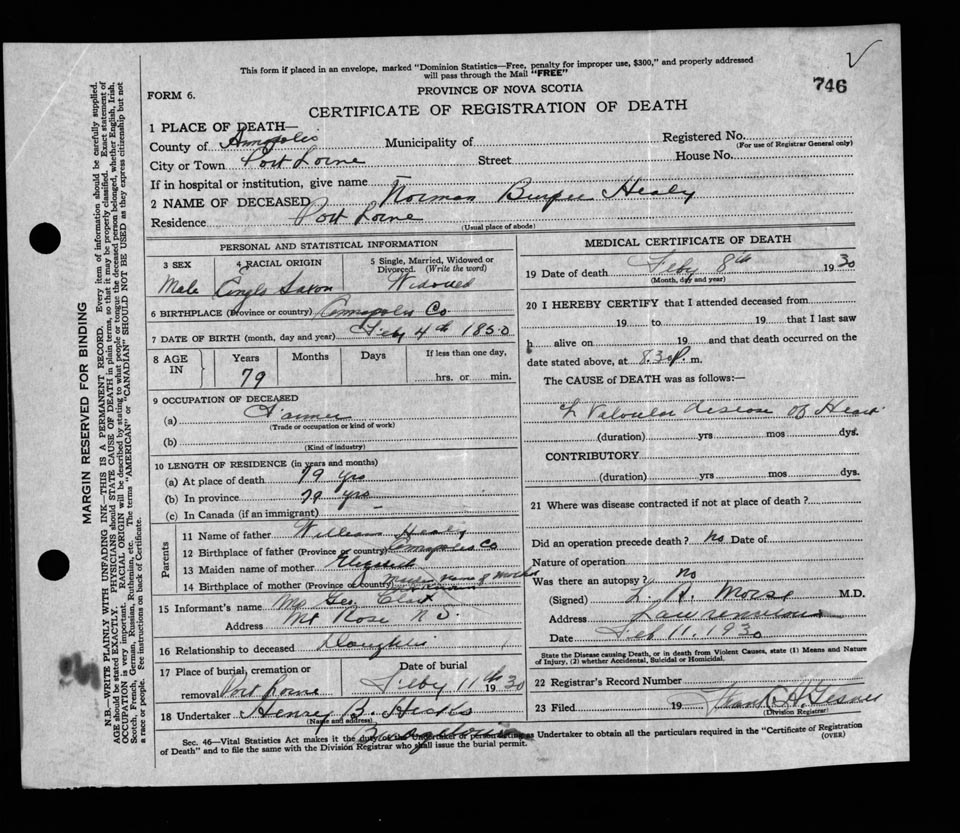 This form if placed in an envelope, marked "Dominion Statistics—Free, penalty for improper use, $300," and properly addressed
will pass through the Mail "FREE"
746
FORM 6.
PROVINCE OF NOVA SCOTIA
CERTIFICATE OF REGISTRATION OF DEATH
1 PLACE OF DEATH—
County of Annapolis Municipality of Registered No.
(For use of Registrar General only)
City or Town Port Lorne Street House No.
If in hospital or institution, give name
2 NAME OF DECEASED Norman Burpee Healy
Residence Port Lorne
(Usual place of abode)
PERSONAL AND STATISTICAL INFORMATION
3 SEX 4 RACIAL ORIGIN 5 Single, Married, Widowed or
Divorced. (Write the word)
Male Anglo Saxon Widowed
6 BIRTHPLACE (Province or country) Annapolis Co.
7 DATE OF BIRTH (month, day and year) Feby 4th 1850
8 AGE IN Years Months Days If less than one day,
79 hrs. or min.
9 OCCUPATION OF DECEASED
(a) Farmer
(Trade or occupation or kind of work)
(b)
(Kind of industry)
10 LENGTH OF RESIDENCE (in years and months)
(a) At place of death 79 yrs
(b) In province 79 yrs
(c) In Canada (if an immigrant) —
Parents
11 Name of father William Healy
12 Birthplace of father (Province or country) Annapolis Co
13 Maiden name of mother Elizabeth
14 Birthplace of mother (Province or country) Maiden name of mother
15 Informant's name Geo.
Address Mt Rose N S.
16 Relationship to deceased Daughter
17 Place of burial, cremation or Date of burial
removal Port Lorne Feby 11th 1930
18 Undertaker Henry B. Hicks
(Name and address)
MEDICAL CERTIFICATE OF DEATH
19 Date of death Feby 8th 1930
(Month, day and year)
20 I HEREBY CERTIFY that I attended deceased from
19 to 19 that I last saw
h alive on 19 and that death occurred on the
date stated above, at 8.30 P. m.
The CAUSE of DEATH was as follows:—
Valvular disease of Heart
(duration) yrs mos dys.
CONTRIBUTORY
(duration) yrs mos dys.
21 Where was disease contracted if not at place of death ?
Did an operation precede death ? No Date of
Nature of operation
Was there an autopsy ? no
(Signed) L. R. Morse M.D.
Address Lawrencetown
Date Feb 11. 1930
State the Disease causing Death, or in death from Violent Causes, state (1) Means and Nature
of Injury, (2) whether Accidental, Suicidal or Homicidal.
22 Registrar's Record Number
23 Filed 19
(Division Registrar)
Sec. 46—Vital Statistics Act makes it the duty of the Undertaker or person acting as Undertaker to obtain all the particulars required in the "Certificate of Registration
of Death" and to file the same with the Division Registrar who shall issue the burial permit.
(OVER)
MARGIN RESERVED FOR BINDING
N.B.—WRITE PLAINLY WITH UNFADING INK—THIS IS A PERMANENT RECORD. Every item of information should be carefully supplied.
AGE should be stated EXACTLY. PHYSICIANS should STATE CAUSE OF DEATH in plain terms, so that it may be properly classified. Exact statement of
OCCUPATION is very important. RACIAL ORIGIN will be described by stating to what people or tongue the deceased person belonged, whether English, Irish,
Scotch, French, German, Russian, Ruthenian, etc. The terms "AMERICAN" or "CANADIAN" SHOULD NOT BE USED as they express citizenship but not
a race or people. See instructions on back of Certificate.